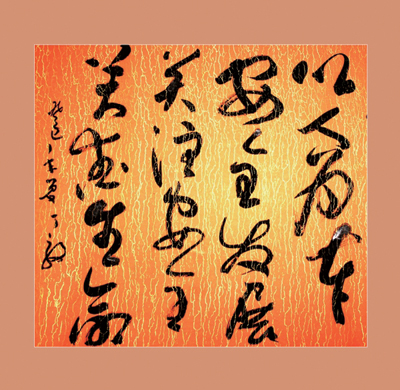 以人为本
安全发展
关注安全
关爱生命